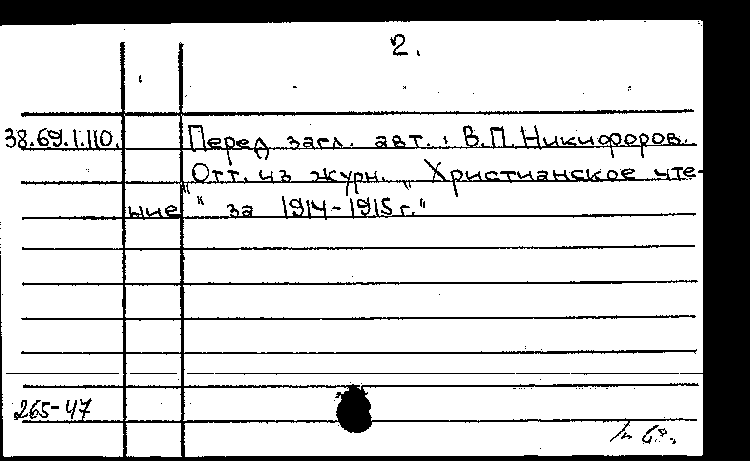 2.
38.69.1.110. Перед загл. авт.: В.П. Никифоров.
"Отт. из журн. "Христианское чте-
ние" за 1914-1915 г."
265-47